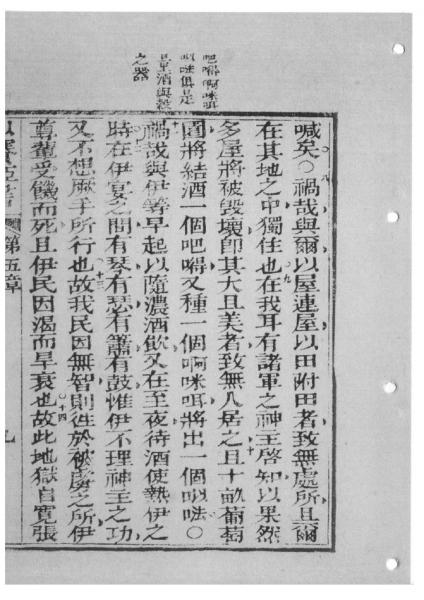 吧㗑啊咪咡
㕽咪俱是
量酒與穀
之器
喊矣○禍哉與爾以屋連屋以田附田者致無處所且爾
在其地之中獨住也九在我耳有諸軍之神主啓知以果然
多屋將被毀壞卽其大且美者致無人居之且十十畝葡萄
園將結酒一個吧㗑又種一個啊咪咡將出一個㕽咪○
禍哉與伊等早起以隨濃酒飲又在至夜待酒使熱伊之
時在伊宴之間有琴有瑟有簫有鼓惟伊不理神主之功
又不想厥手所行也十三故我民因無智則徃於被虜之所伊
尊輩受饑而死且伊民因渴而早衰也十四故此地獄自寛張
以賽亞書 第五章 九